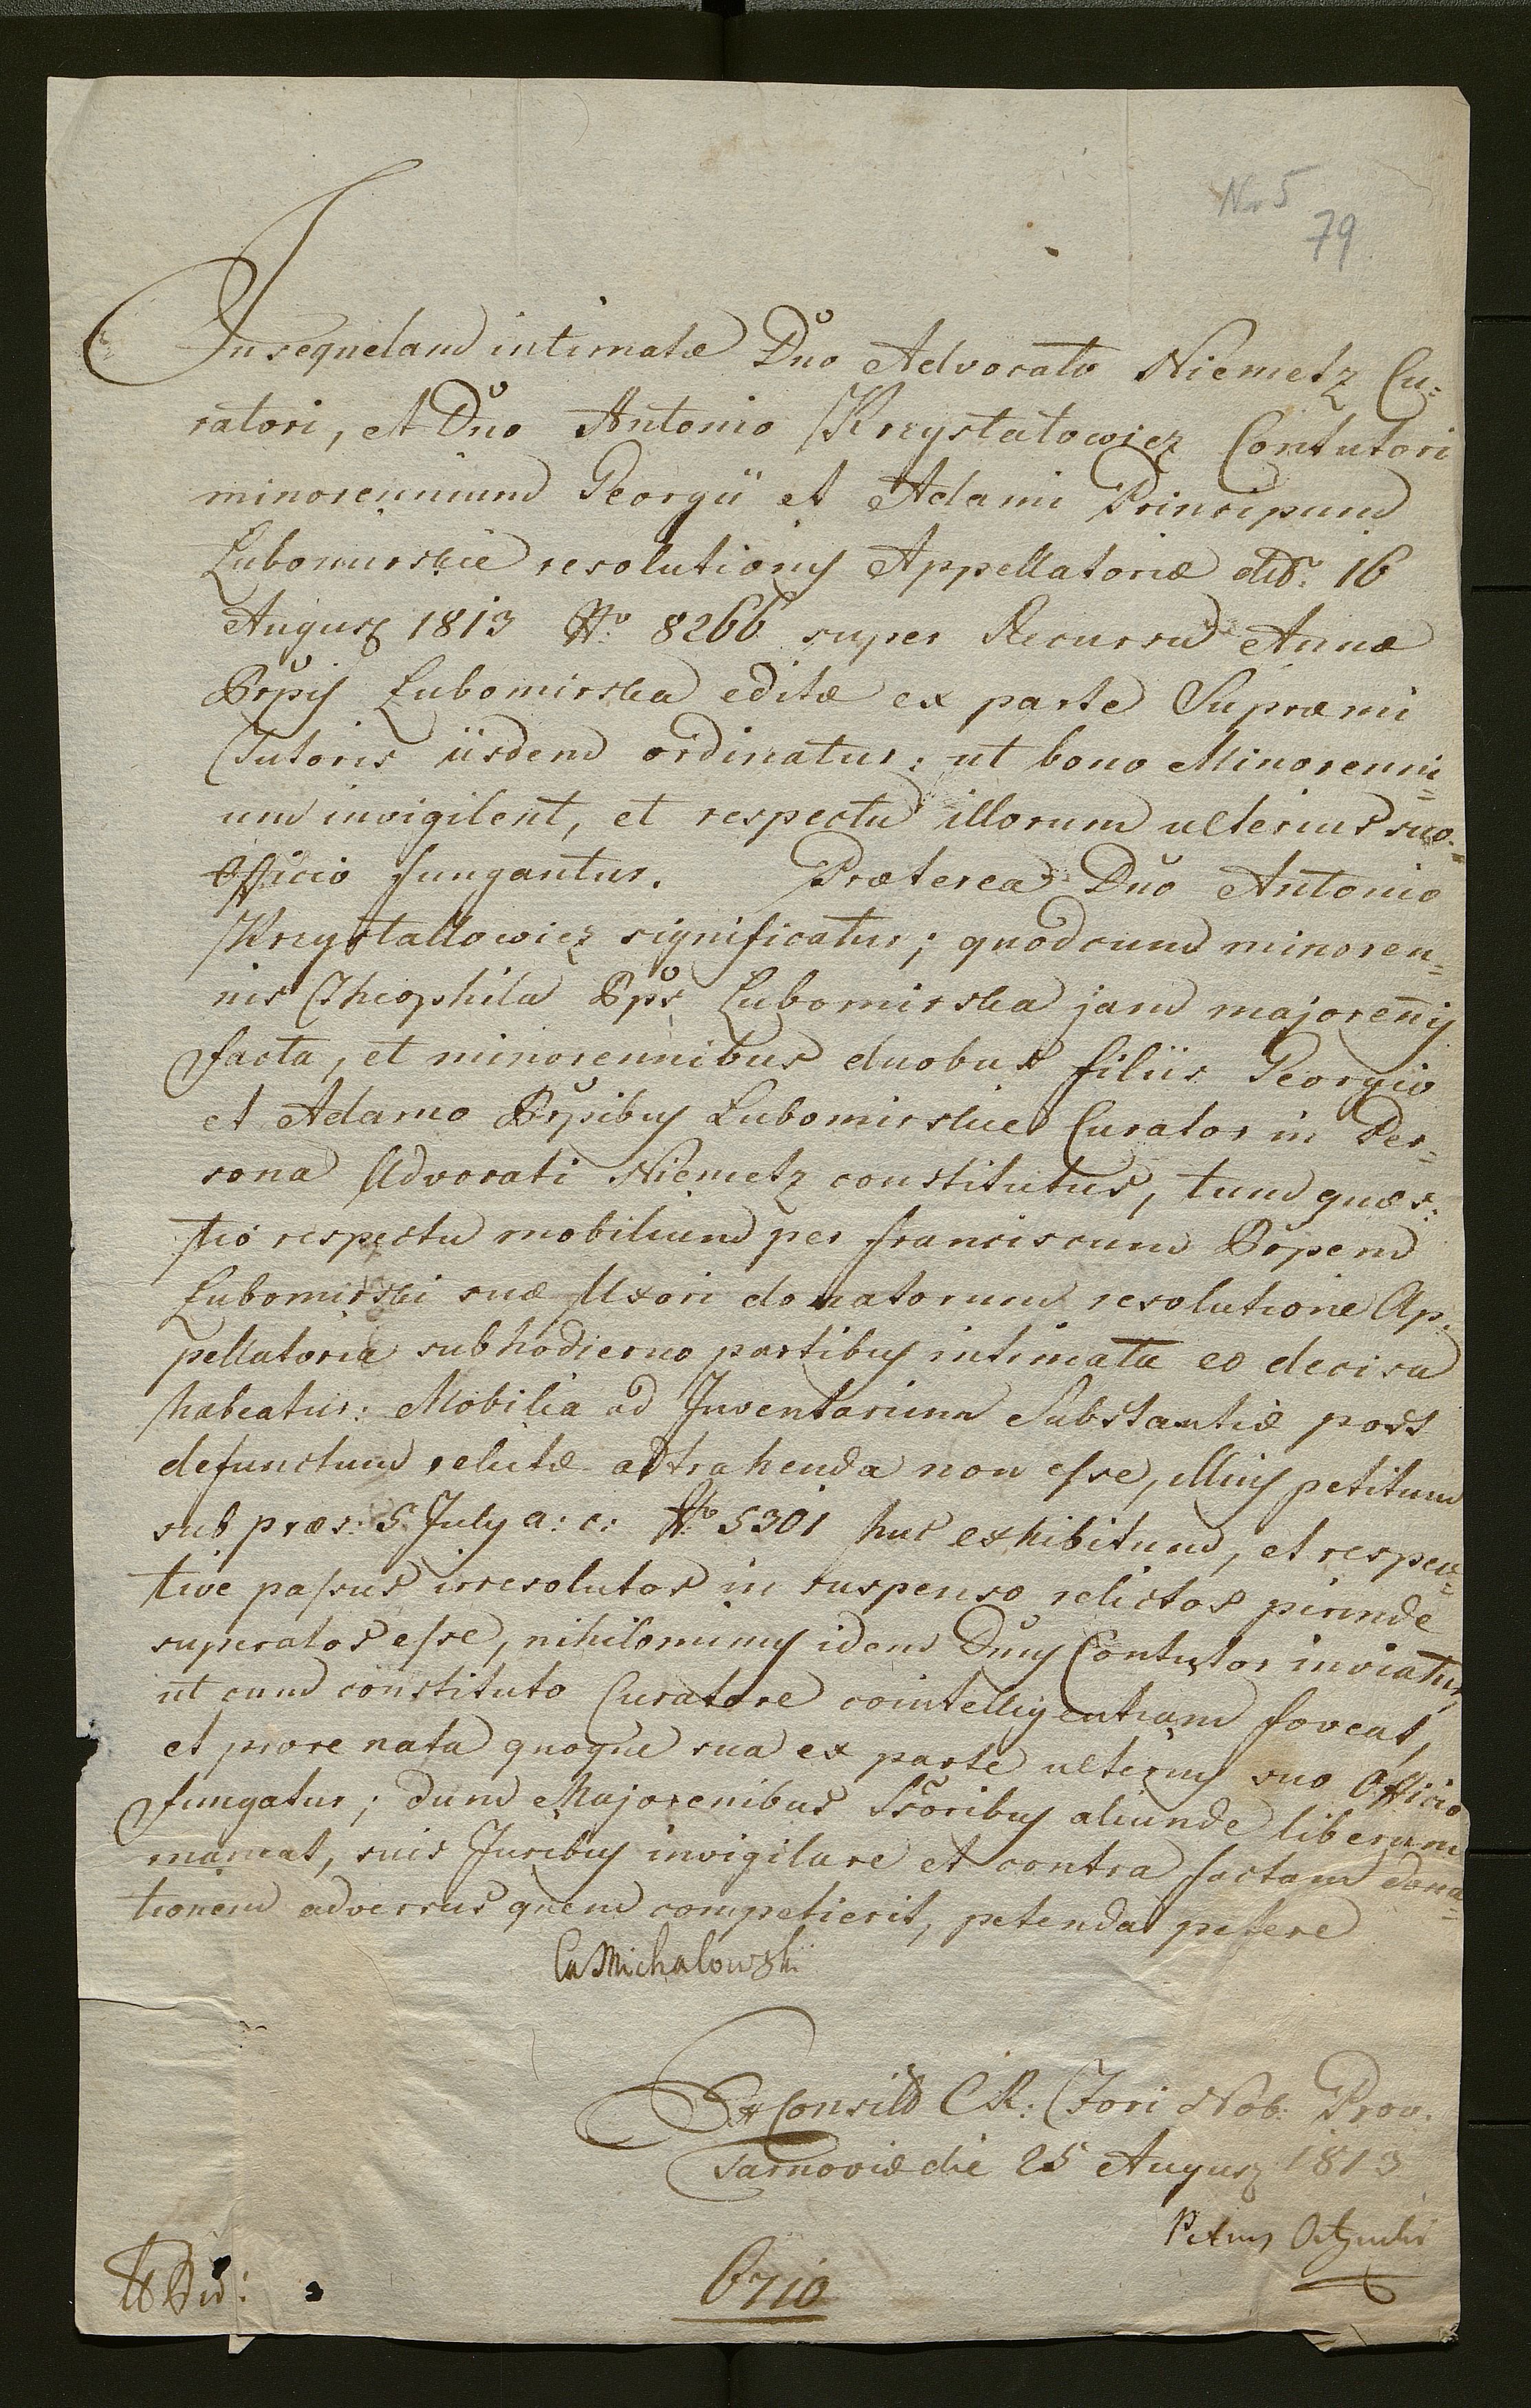 Nr 5
79
In sequelam intimatæ Dno Advocato Niemetz Cu=
ratori, et Dno Antonio Krzystałowicz Contutori
minorennium Georgii et Adami Principum
Lubomirskie resolutionis Appellatoriæ ddto 16
August 1813 No 8266 super Recursu Annæ
Prpis Lubomirska editæ ex parte Supræmi
Tutoris iisdem ordinatur: ut bono Minorenni=
um invigilent, et respectu illorum ulterius suo
Officio fungantur. Præterea Dno Antonio
Krzystallowicz significatur; quod cum minoren=
nis Theophila Pps Lubomirska jam majorenis
facta, et minorennibus duobus filiis Georgio
et Adamo Prpibus Lubomirskie Curator in Per=
sona Advocati Niemetz constitutus, tum quæs:
tio respectu mobilium per Franciscum Prpem
Lubomirski suæ Uxori donatorum resolutione Ap=
pellatoria sub hodierno partibus intimata eo decisa
habeatur: Mobilia ad Inventarium Substantiæ post
defunctum relictæ adtrahenda non esse, illius petitum
sub præs: 5 July a: c: No 5301 huc exhibitum, et respec=
tive passus irresolutos in suspenso relictos perinde
superatos esse, nihilominus idem Dnus Contutor inviatur,
ut cum constituto Curatore cointelligentiam foveat,
et prore nata quoque sua ex parte ulterius suo Officio
fungatur; dum Majorenibus Sčoribus aliunde liberum
maneat, suis Juribus invigilare et contra factam dona=
tionem adversus quem competierit, petenda petere
Ca Michalowski
Ex Consilio C.R: Fori Nob: Prov.
Tarnoviæ die 25 August 1813
Petrus
6710